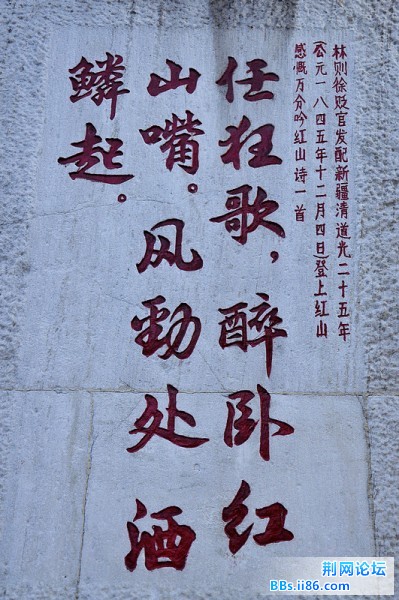 林则徐贬官发配新疆清道光二十五年
(公元一八四五年十二月四日)登上红山
感慨万分吟红山诗一首
任狂歌，醉卧红
山嘴。风勁处洒
鳞起。
荆网论坛
BBs.ii86.com